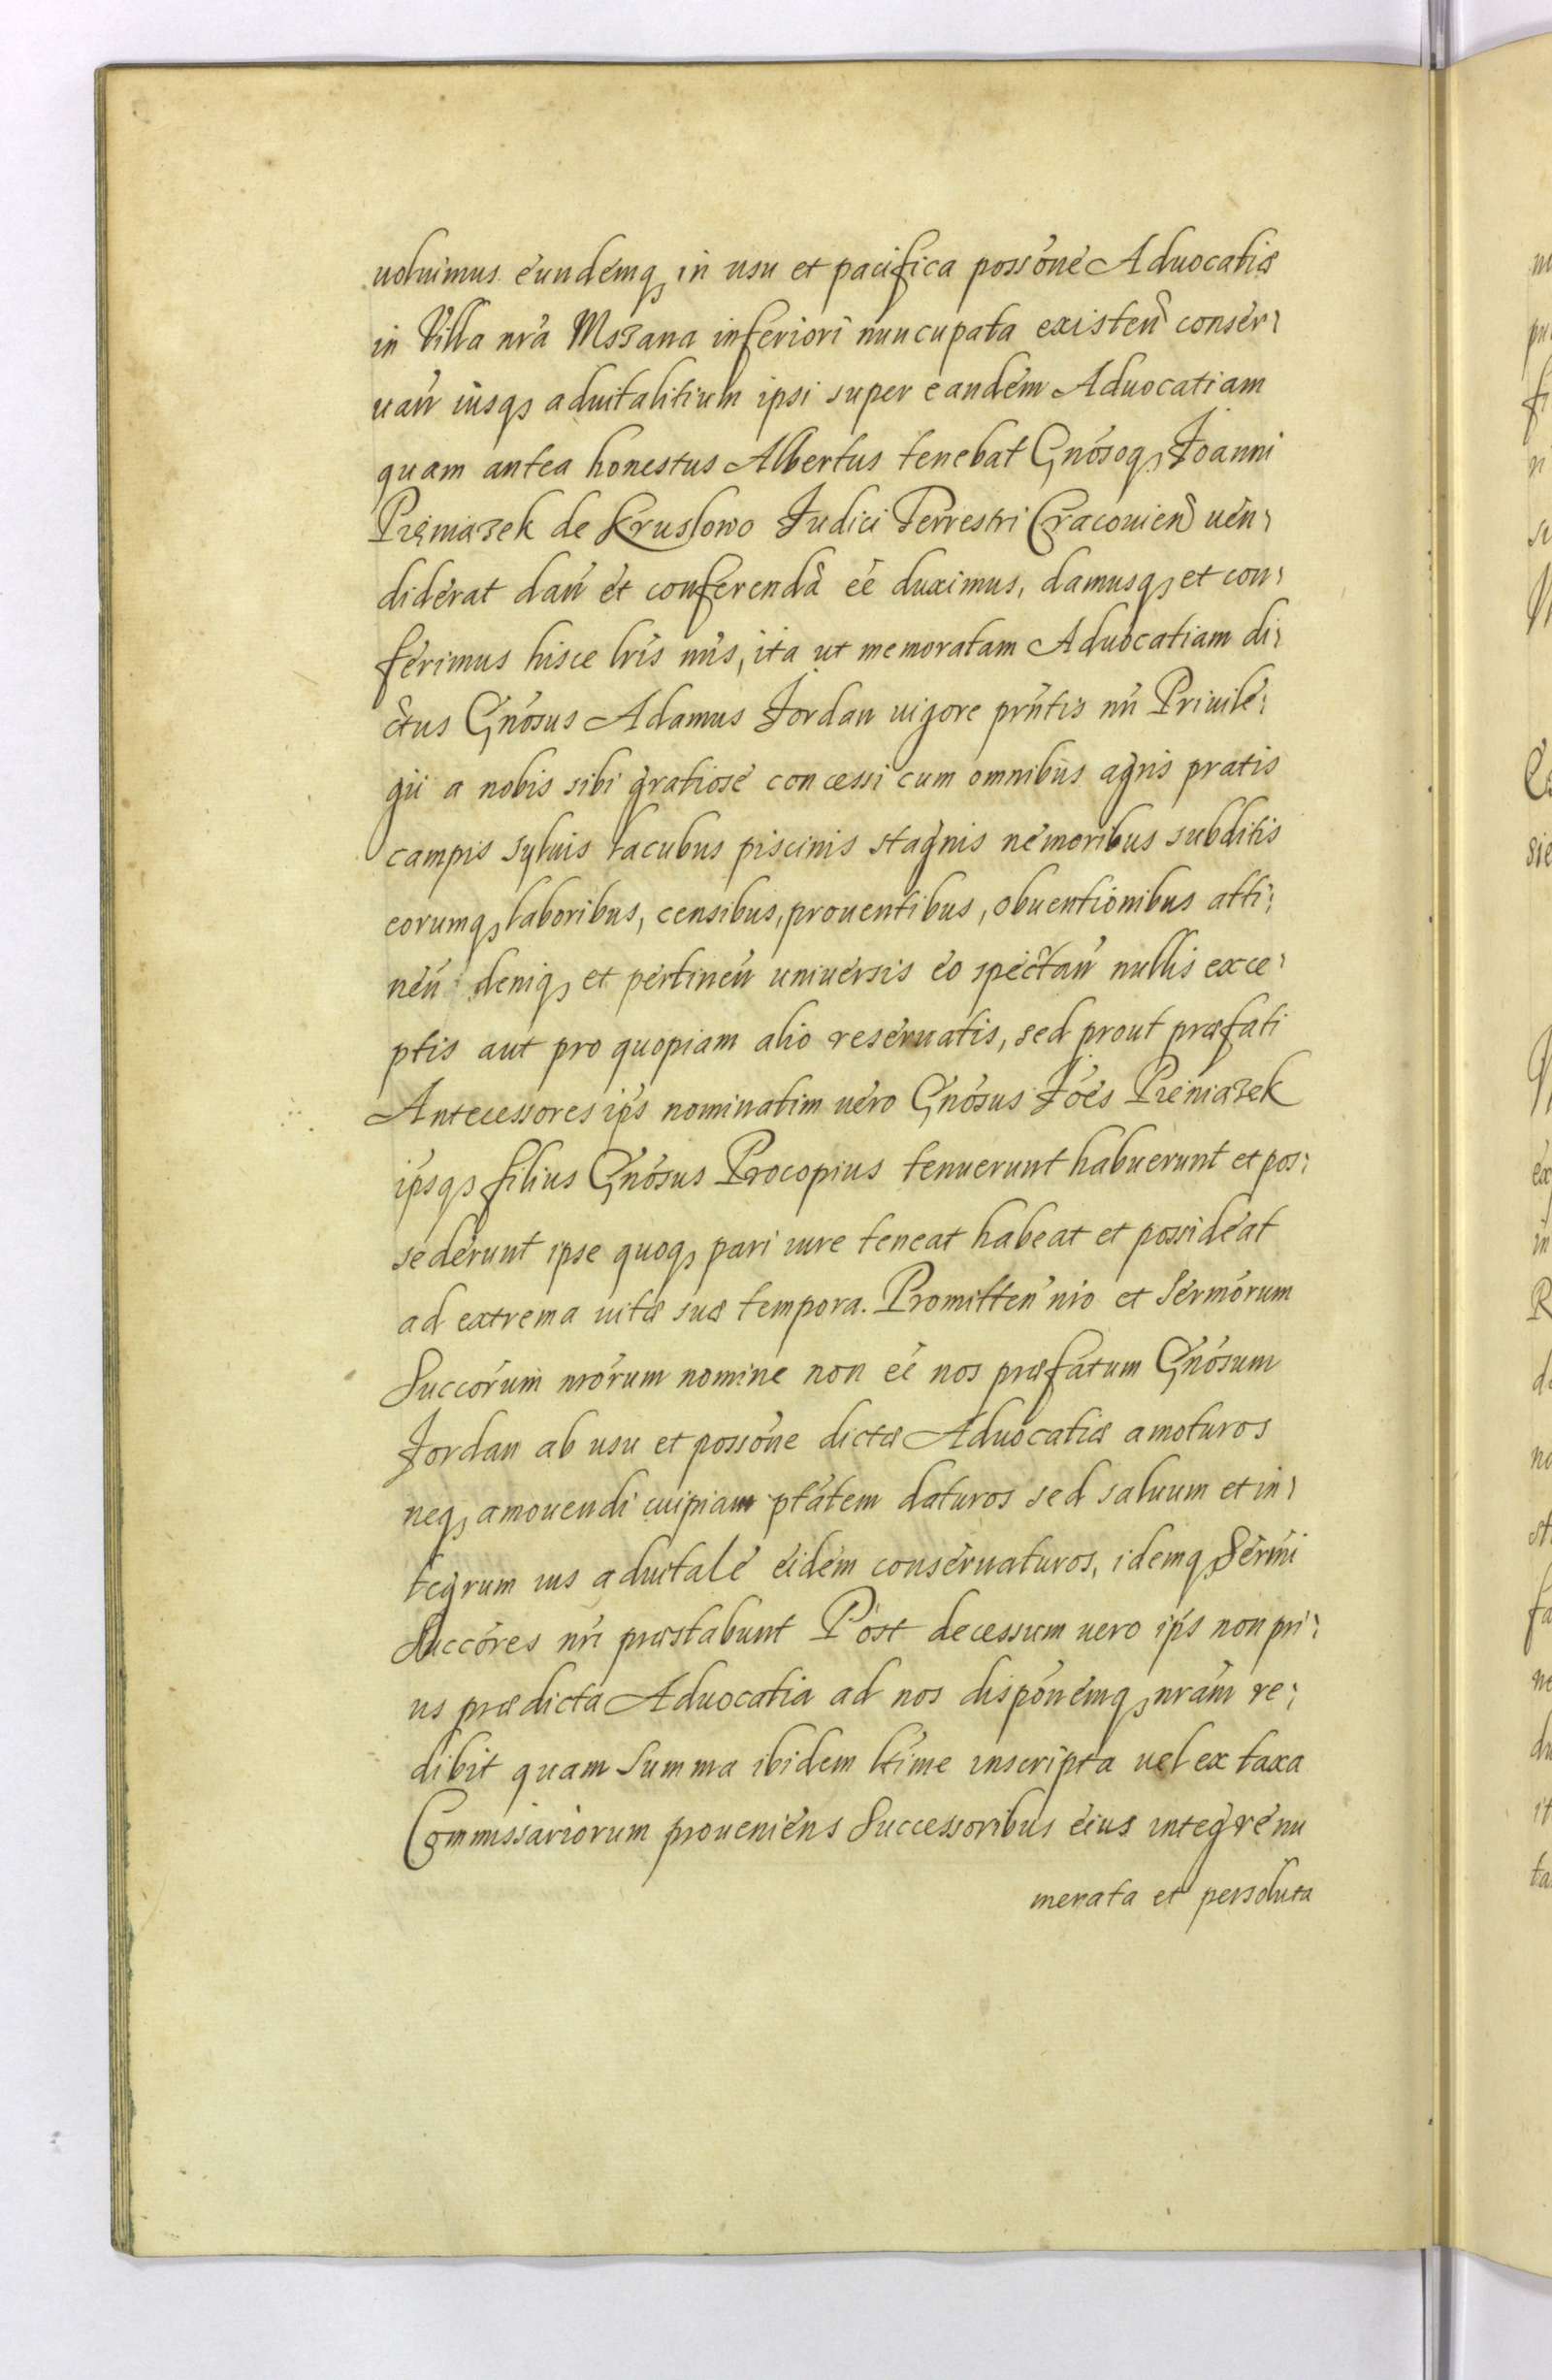 uoluimus eundemq3 in usu et pacifica possone Aduocatiæ
in Villa nra Mszana inferiori nuncupata existen conser-
uan iusq3 aduitalitium ipsi super eandem Aduocatiam
quam antea honestus Albertus tenebat Gnosoq3 Joanni
Pięniazek de Kruslowo Judici Terrestri Cracouien uen-
diderat dan et conferenda ee duximus, damusq3 et con-
ferimus hisce lris nris, ita ut memoratam Aduocatiam di-
ctus Gnosus Adamus Jordan uigore prntis nri Priuile-
gii a nobis sibi gratiose concessi cum omnibus agris pratis
campis syluis lacubus piscinis stagnis nemoribus subditis
eorumq3 laboribus, censibus, prouentibus, obuentionibus atti-
nen deniq3 et pertinen uniuersis eo spectan nullis exce-
ptis aut pro quopiam alio reseruatis, sed prout præfati
Antecessores ips nominatim uero Gnosus Joes Pieniazek
ipsq3 filius Gnosus Procopius tenuerunt habuerunt et pos-
sederunt ipse quoq3 pari iure teneat habeat et possideat
ad extrema uitæ suæ tempora. Promitten nro et Sermorum
Succorum nrorum nomine non ee nos præfatum Gnosum
Jordan ab usu et possone dictæ Aduocatiæ amoturos
neq3 amouendi cuipiam ptatem daturos sed saluum et in-
tegrum ius aduitale eidem conseruaturos, idemq3 Sermi
Succores nri præstabunt Post decessum uero ips non pri-
us prædicta Aduocatia ad nos disponemq3 nram re-
dibit quam Summa ibidem ltime inscripta uel ex taxa
Commissariorum proueniens Successoribus eius integre nu
merata et persoluta